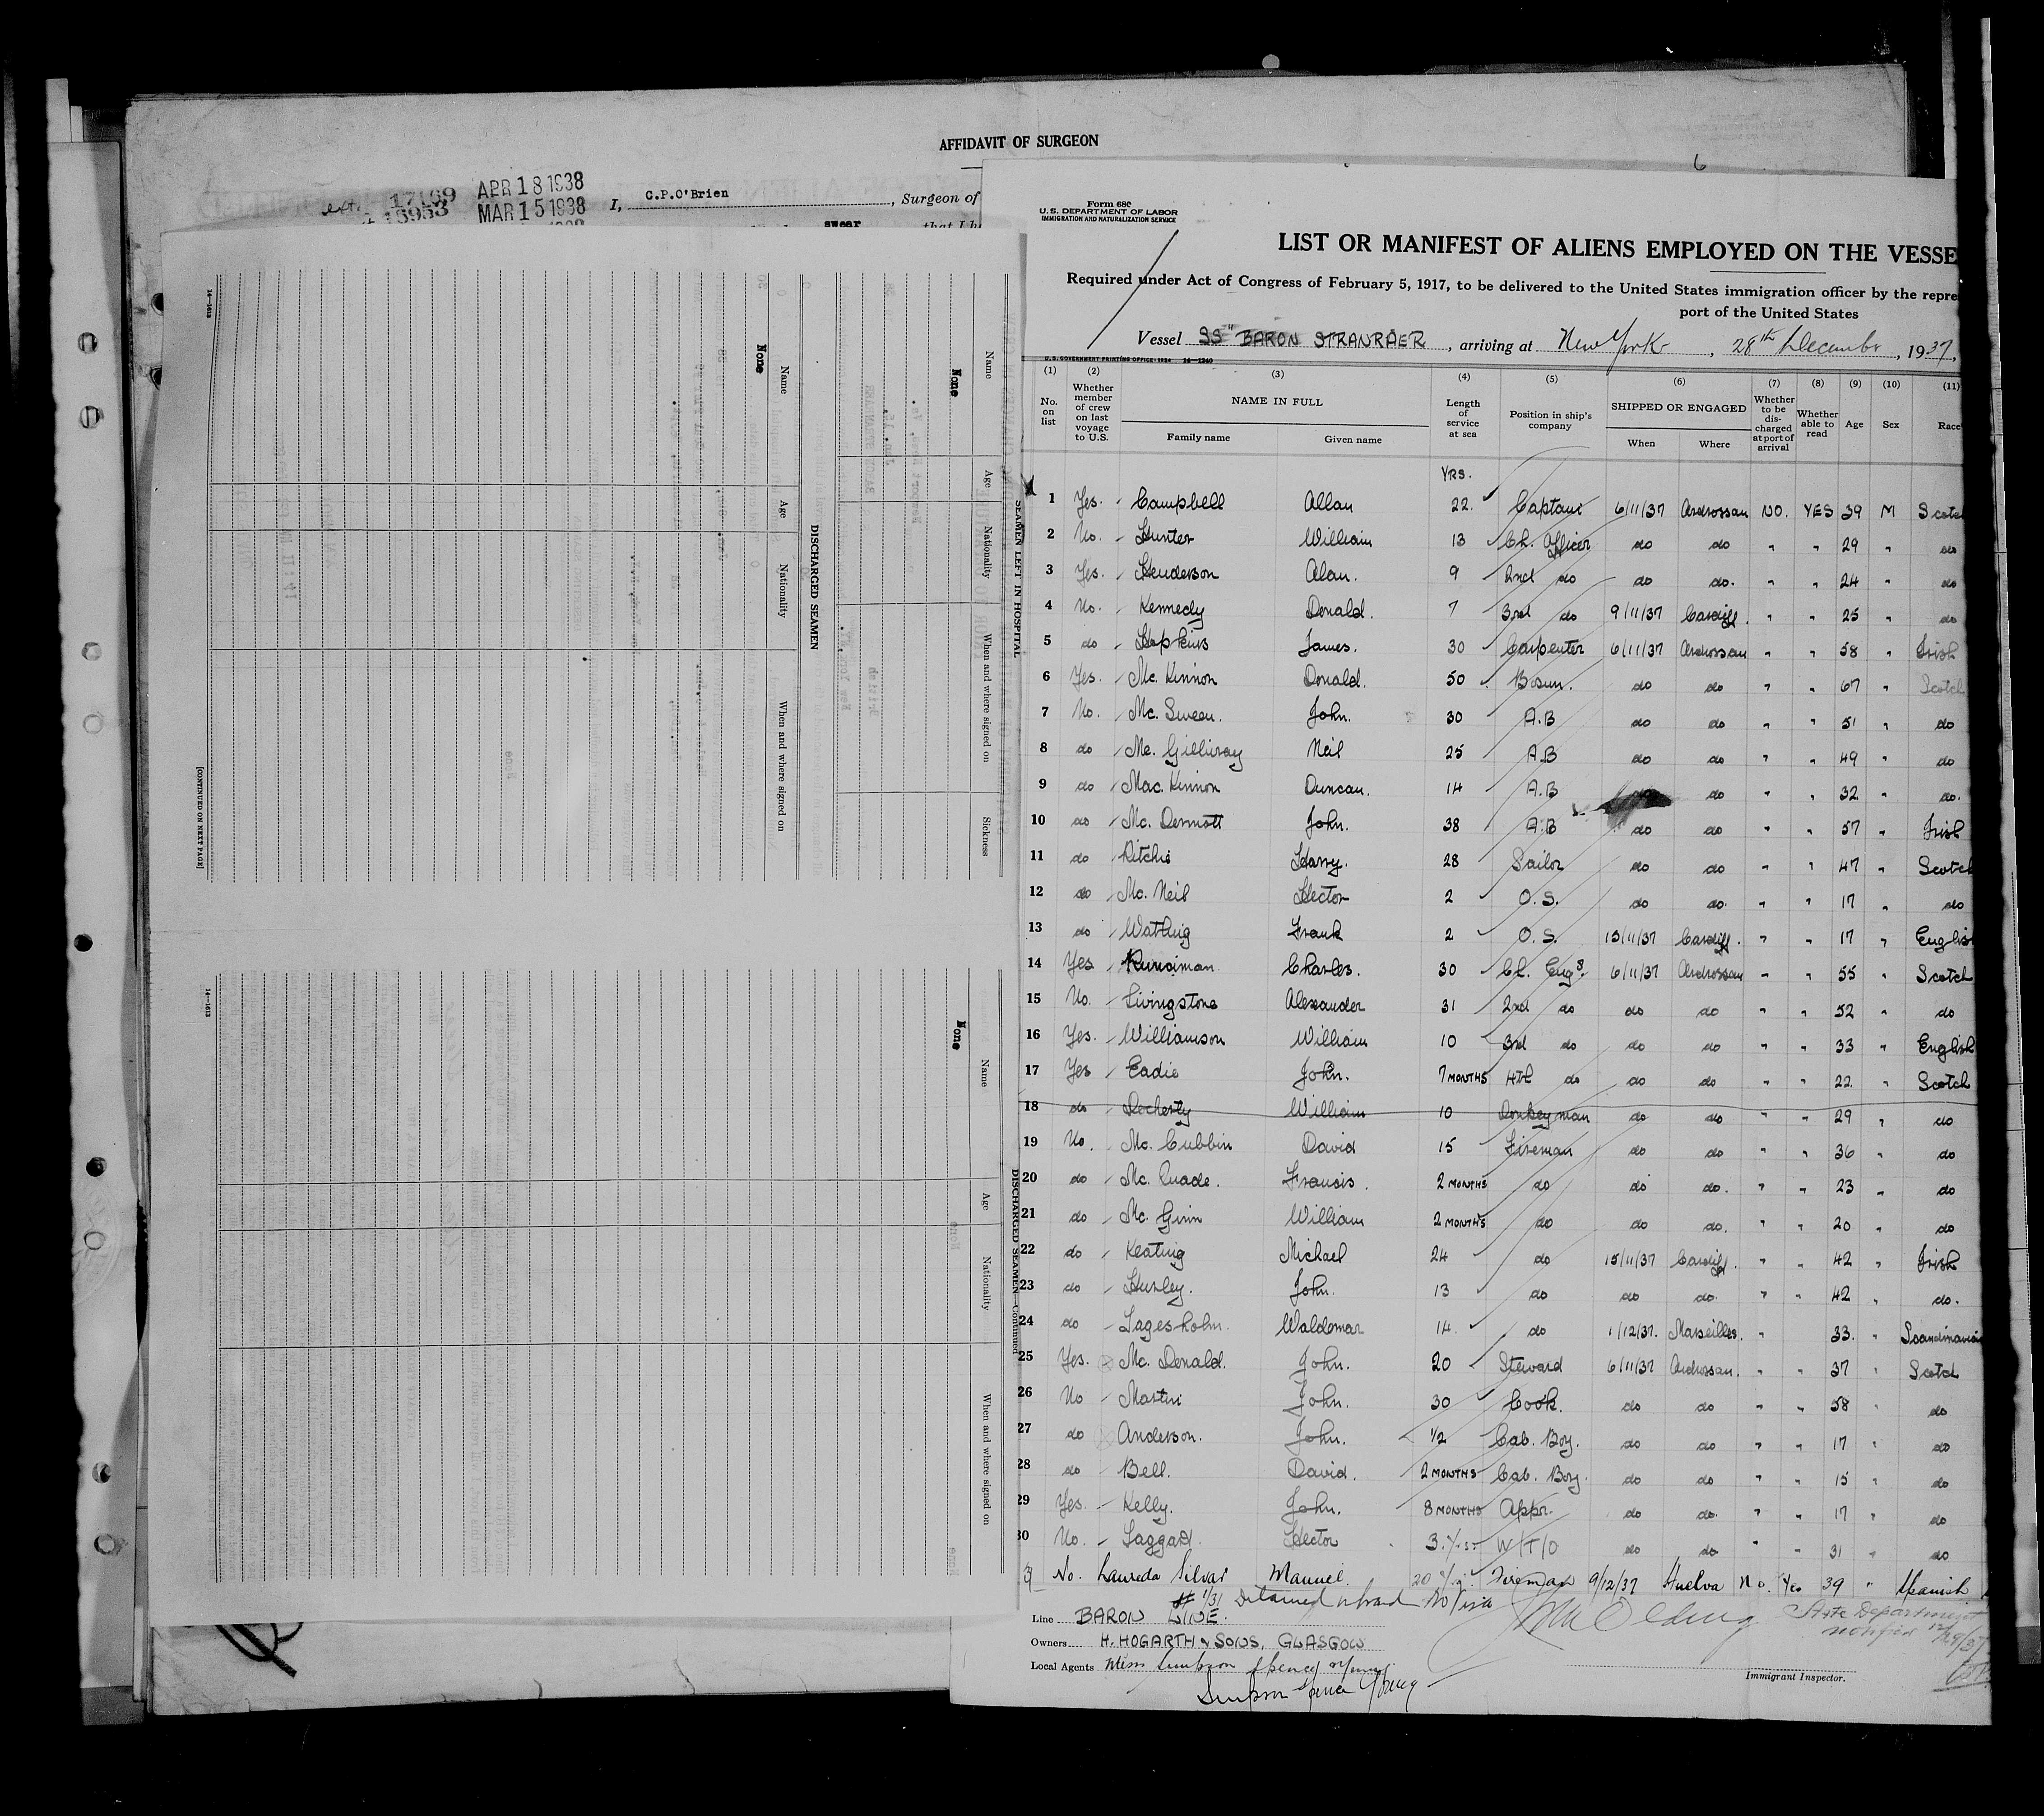 AFFIDAVIT OF SURGEON
17169 APR 18 1938
MAR 15 1938
I, C.P.O'Brien, Surgeon of
swear that I h
6
Form 680
U.S. DEPARTMENT OF LABOR
IMMIGRATION AND NATURALIZATION SERVICE
LIST OR MANIFEST OF ALIENS EMPLOYED ON THE VESSE
Required under Act of Congress of February 5, 1917, to be delivered to the United States immigration officer by the repre
port of the United States
Vessel SS" BARON STRANRAER, arriving at New York, 28th December, 1937,
U.S. GOVERNMENT PRINTING OFFICE: 1934 14—1240
(1) (2) (3) (4) (5) (6) (7) (8) (9) (10) (11)
No. on list | Whether member of crew on last voyage to U.S. | NAME IN FULL | Length of service at sea | Position in ship's company | SHIPPED OR ENGAGED | Whether to be discharged at port of arrival | Whether able to read | Age | Sex | Race
Family name Given name When Where
YRS.
1 Yes. Campbell Allan 22. Captain 6/11/37 Ardrossan NO. YES 39 M Scotch
2 No. Hunter William 13 Ch. Officer do do " " 29 " do
3 Yes. Henderson Alan. 9 2nd do do do. " " 24 " do
4 No. Kennedy Donald. 7 3rd do 9/11/37 Cardiff. " " 25 " do
5 do Hopkins James. 30 Carpenter 6/11/37 Ardrossan " " 58 " Irish
6 Yes. Mc. Kinnon Donald. 50 Bosun. do do " " 67 " Scotch
7 No. Mc. Sween. John. 30 A.B do do " " 51 " do
8 do Mc. Gillivray Neil 25 A.B do do " " 49 " do
9 do Mac. Kinnon Duncan. 14 A.B do do " " 32 " do.
10 do Mc. Dermott John. 38 A.B do do " " 57 " Irish
11 do Ritchie Harry. 28 Sailor do do " " 47 " Scotch
12 do Mc. Neil Hector 2 O.S. do do. " " 17 " do
13 do Watling Frank 2 O.S. 15/11/37 Cardiff. " " 17 " English
14 Yes Runciman. Charles. 30 Ch. Engr. 6/11/37 Ardrossan " " 55 " Scotch
15 No. Livingstone Alexander 31 2nd do do do " " 52 " do
16 Yes. Williamson William 10 3rd do do do " " 33 " English
17 Yes Eadie John. 7 MONTHS 4th do do do " " 22 " Scotch
18 do Docherty William 10 Donkeyman do do " " 29 " do
19 No. Mc. Cubbin David 15 Fireman do do " " 36 " do
20 do Mc. Quade. Francis. 2 MONTHS do do do. " " 23 " do
21 do Mc. Ginn William 2 MONTHS do do do. " " 20 " do
22 do Keating Michael 24 do 15/11/37 Cardiff. " " 42 " Irish
23 do Hurley. John. 13 do do do. " " 42 " do.
24 do Lagesholm. Waldemar 14. do 1/12/37. Marseilles. " 33. " Scandinavian
25 Yes. Mc. Donald. John. 20 Steward 6/11/37 Ardrossan. " " 37 " Scotch
26 No Martin John. 30 Cook. do do " " 58 " do
27 do Anderson. John. 1/2 Cab. Boy. do do " " 17 " do
28 do Bell. David. 2 MONTHS Cab. Boy. do do " " 15 " do
29 Yes. Kelly. John. 8 MONTHS Appr. do do. " " 17 " do
30 No. Taggart Hector 3. W/T/O do do " " 31 " do
31 No. Laureda Silvar Manuel. 20 Fireman 9/12/37 Huelva No. Yes 39 " Spanish
# 1/31 Detained aboard No visa
State Department
notified 12/28/37
Line BARON LINE.
Owners H. HOGARTH & SONS, GLASGOW
Local Agents Mess Simpson Spence & Young.
Simpson Spence Young
Immigrant Inspector.
SEAMEN LEFT IN HOSPITAL
Name Age Nationality When and where signed on Sickness
None
DISCHARGED SEAMEN
Name Age Nationality When and where signed on
None
14—1613
[CONTINUED ON NEXT PAGE]
DISCHARGED SEAMEN—Continued
Name Age Nationality When and where signed on
None
14—1613